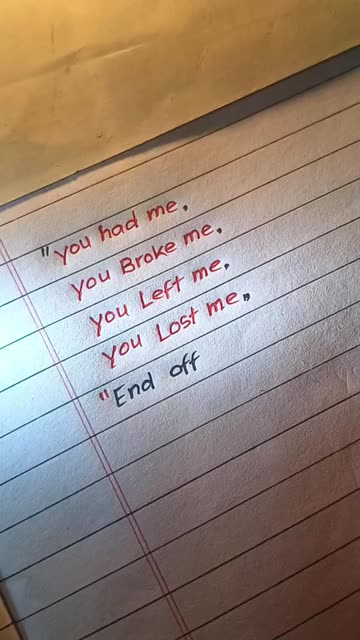 "you had me,
you Broke me,
you Left me,
you Lost me"
"End off